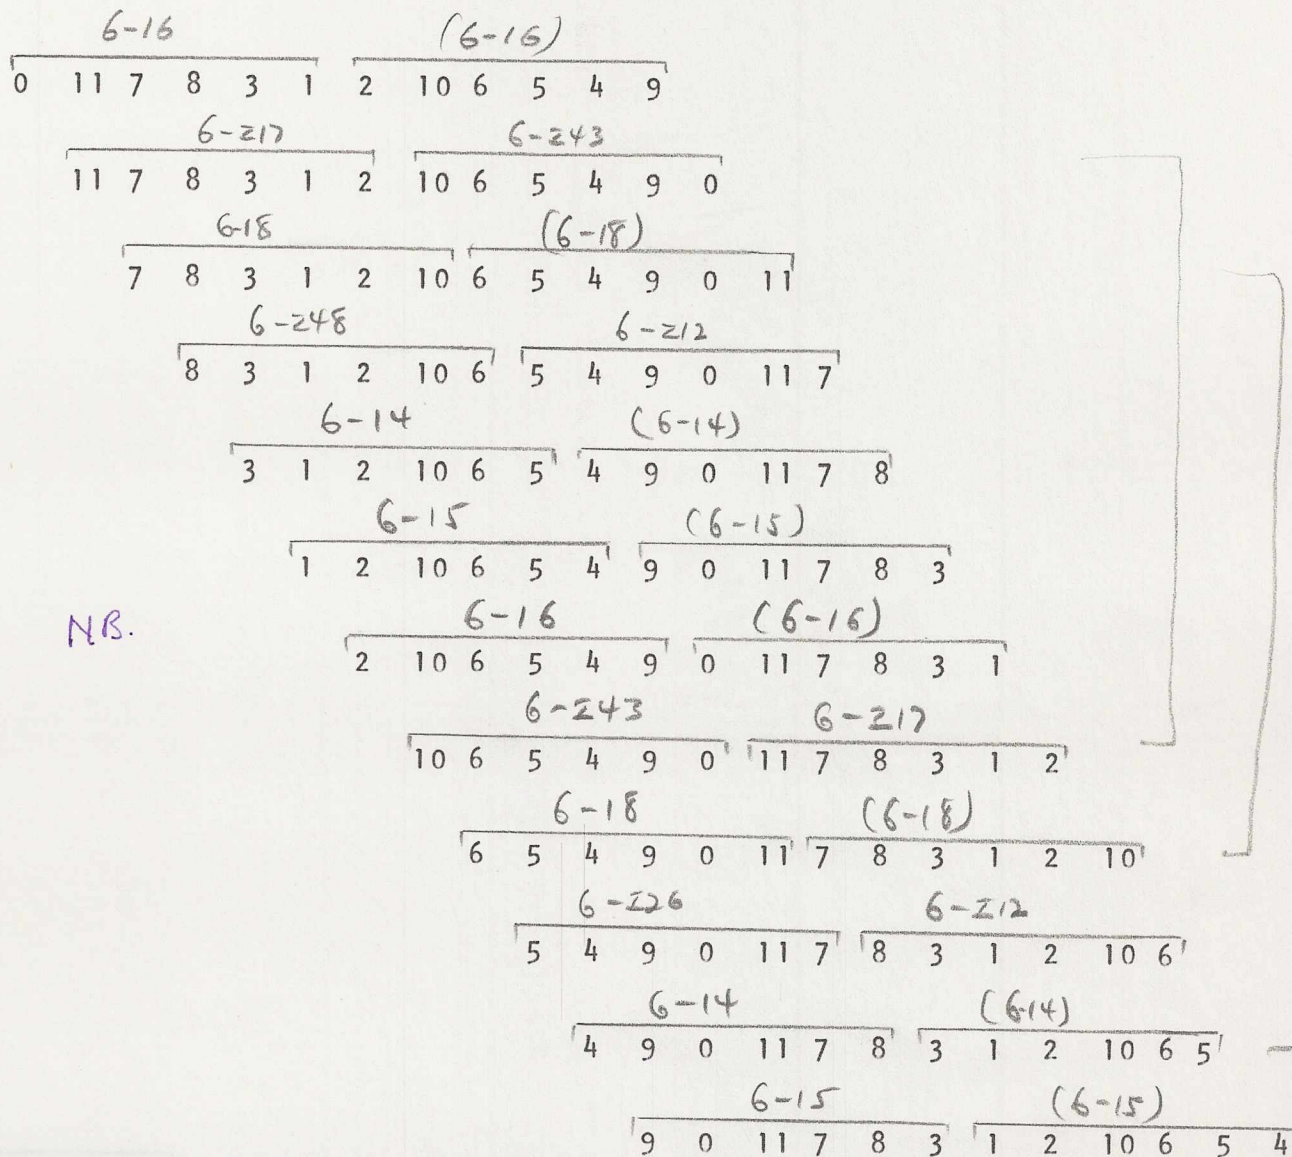 6-16 (6-16)
0 11 7 8 3 1 2 10 6 5 4 9
6-z17 6-z43
11 7 8 3 1 2 10 6 5 4 9 0
6-18 (6-18)
7 8 3 1 2 10 6 5 4 9 0 11
6-z48 6-z12
8 3 1 2 10 6 5 4 9 0 11 7
6-14 (6-14)
3 1 2 10 6 5 4 9 0 11 7 8
6-15 (6-15)
1 2 10 6 5 4 9 0 11 7 8 3
NB. 6-16 (6-16)
2 10 6 5 4 9 0 11 7 8 3 1
6-z43 6-z17
10 6 5 4 9 0 11 7 8 3 1 2
6-18 (6-18)
6 5 4 9 0 11 7 8 3 1 2 10
6-z26 6-z12
5 4 9 0 11 7 8 3 1 2 10 6
6-14 (6-14)
4 9 0 11 7 8 3 1 2 10 6 5
6-15 (6-15)
9 0 11 7 8 3 1 2 10 6 5 4